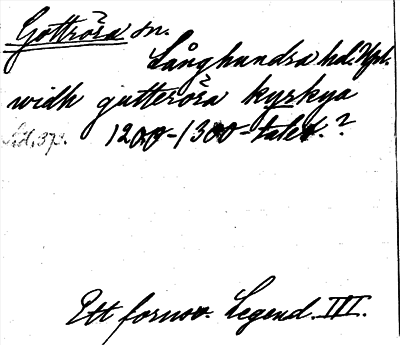 Gottröra sn.
Långhundra hd. Upl.
widh gutteröra kyrkya
Sid. 373. 1200-1300-talet.?
Ett fornsv. Legend. III.